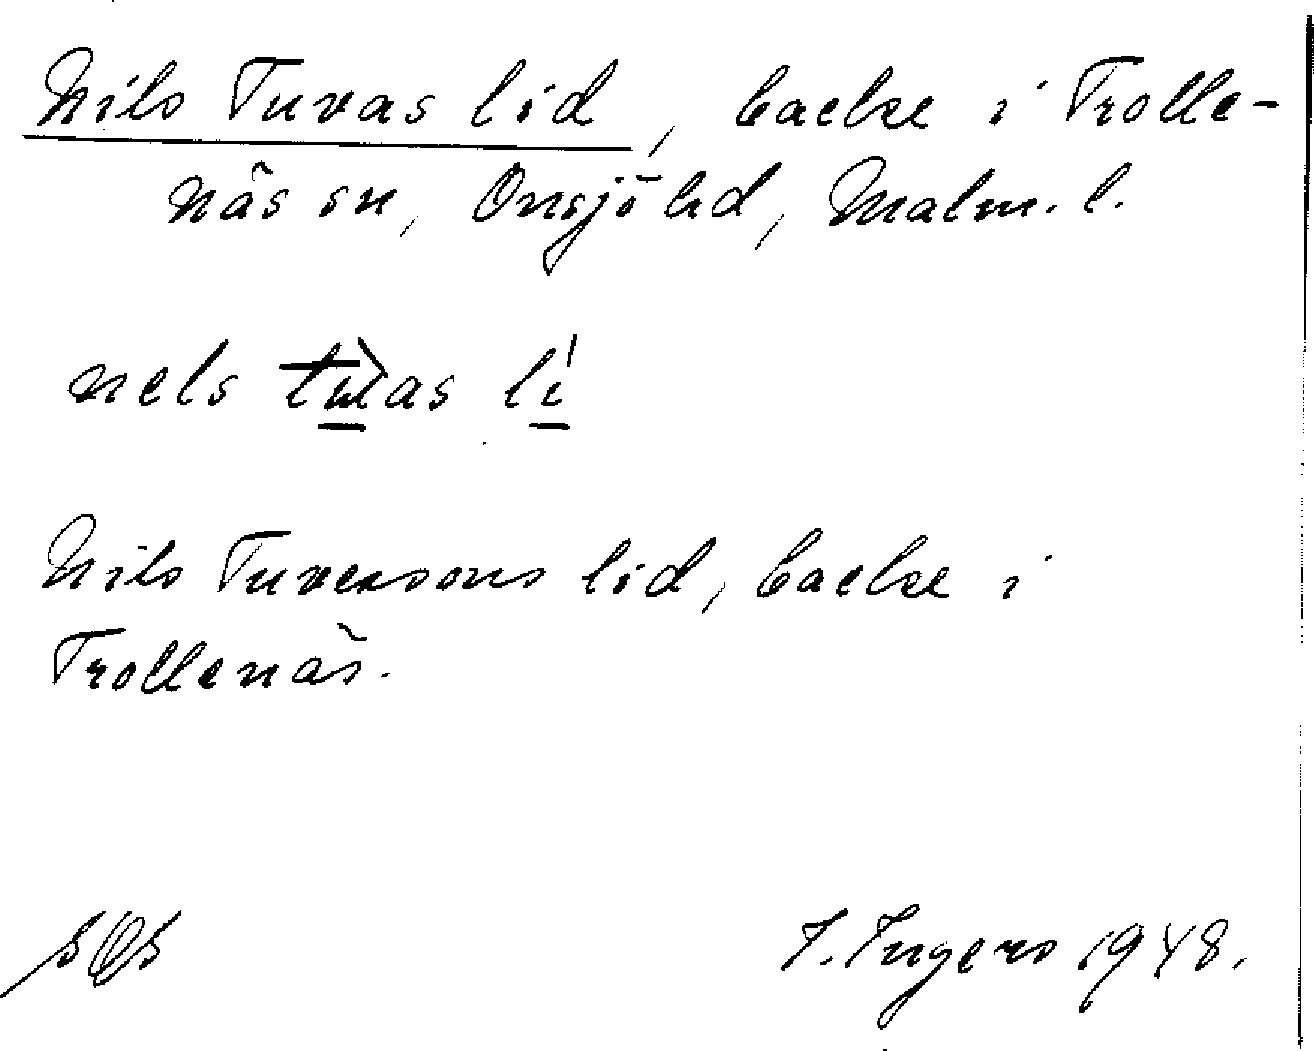 Nils Tuvas lid, backe i Trolle-
näs sn, Onsjö hd, Malm. l.
nels tu̲as li̲
Nils Tuvessons lid, backe i
Trollenäs.
I. Ingers 1948.